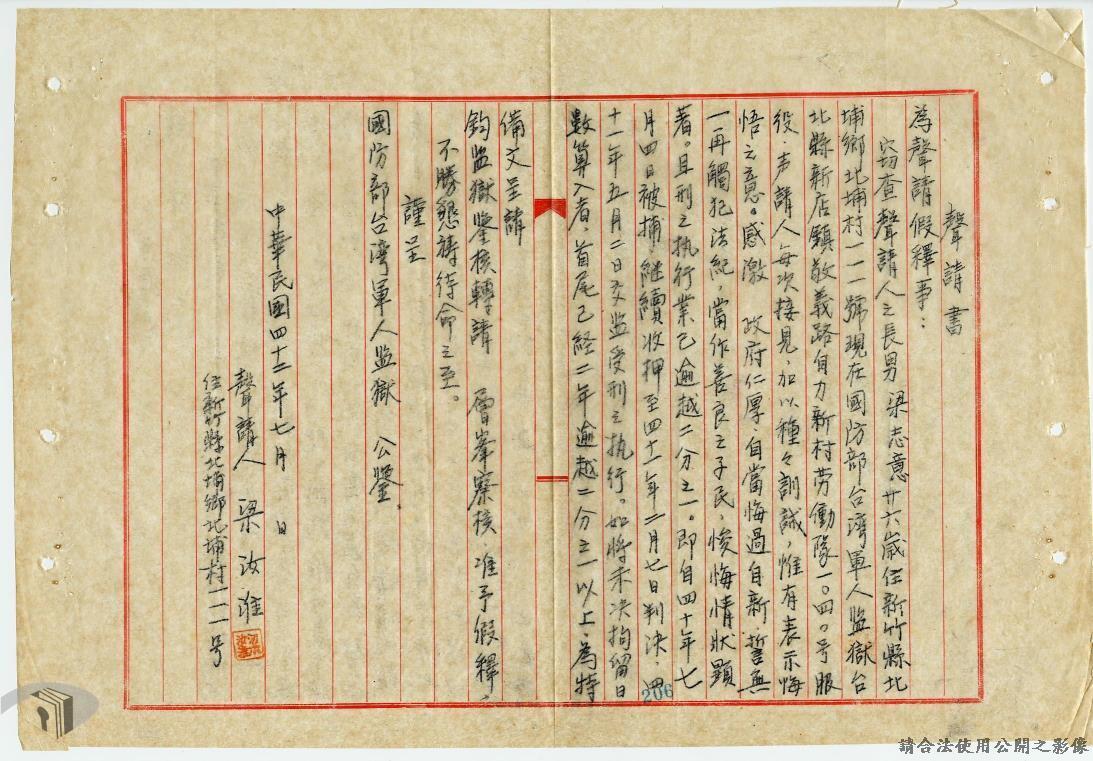 聲請書
為聲請假釋事：
窃查聲請人之長男 梁志意 廿六歲住新竹縣北
埔鄉北埔村一一一號現在國防部台湾軍人監獄台
北縣新店鎮敬義路自力新村劳働隊一〇四〇号服
役，声請人每次接見，加以種々訓誡，惟有表示悔
悟之意。感激　政府仁厚，自當悔過自新，誓無
一再觸犯法紀，當作善良之子民，悛悔情狀顯
著。且刑之执行業已逾越二分之一。即自四十年七
月四日被捕继續收押至四十一年二月七日判决，四
十一年五月二日交监受刑之执行。如將未决拘留日
數算入者，首尾已経二年逾越二分之一以上，為特
備文呈請
鈞监獄鑒核轉請　層峯察核，准予假釋，
不勝懇禱待命之至。
謹呈
國防部台湾軍人监獄　公鑒
聲請人 梁汝淮
住新竹縣北埔鄉北埔村一一一号
中華民國四十二年七月　日
206
請合法使用公開之影像